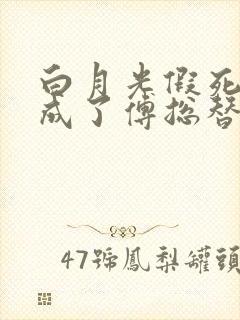 白月光假死
成了傅总替
47號鳳梨罐頭